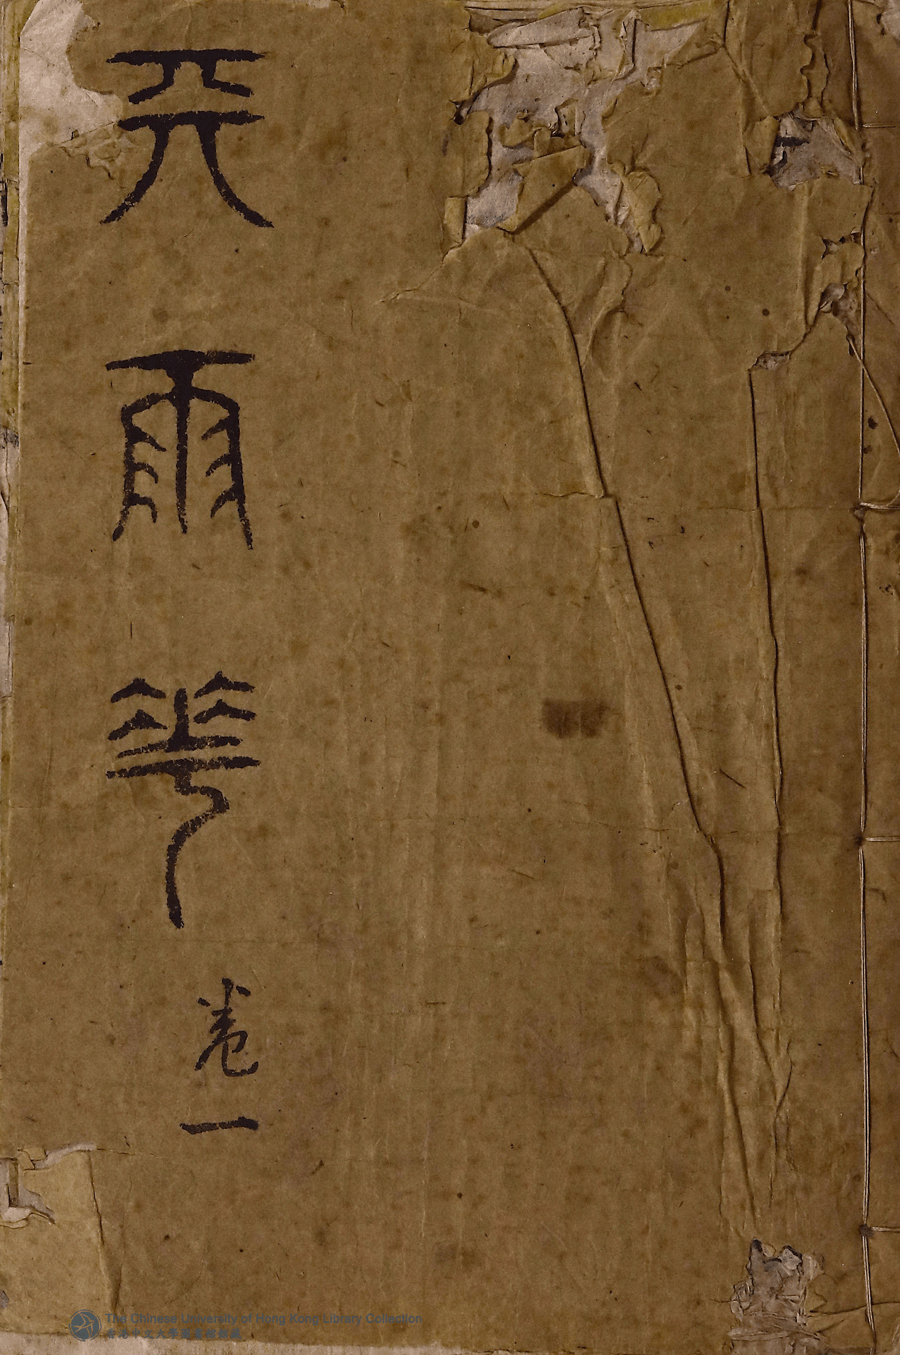 天雨華
卷一
The Chinese University of Hong Kong Library Collection
香港中文大學圖書館館藏